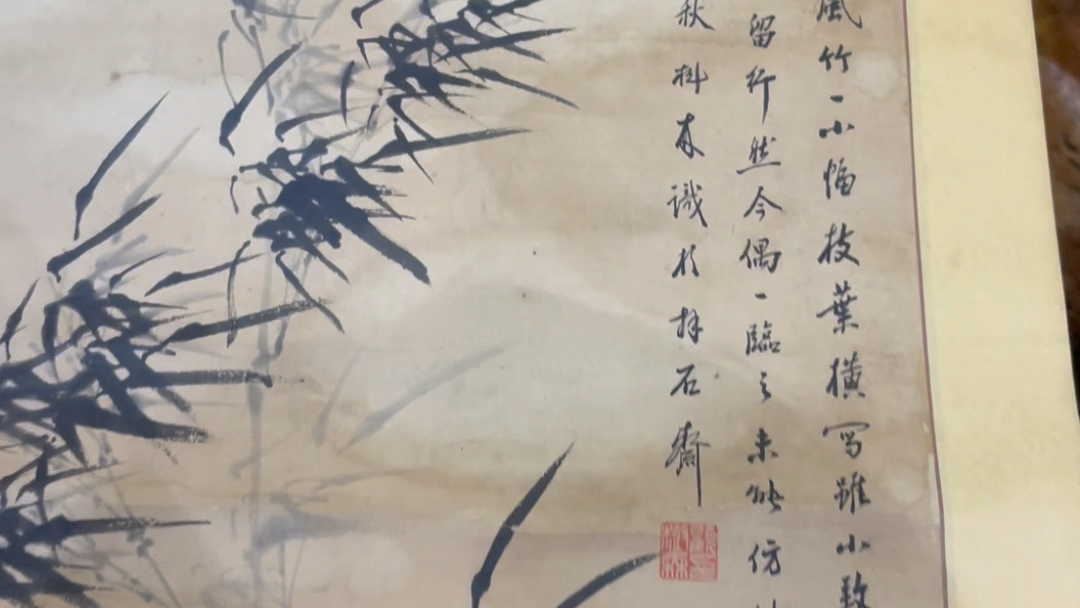 風竹一小幅枝葉横寫雖小致
留行然今偶一臨之未能仿
秋  識於拜石齋